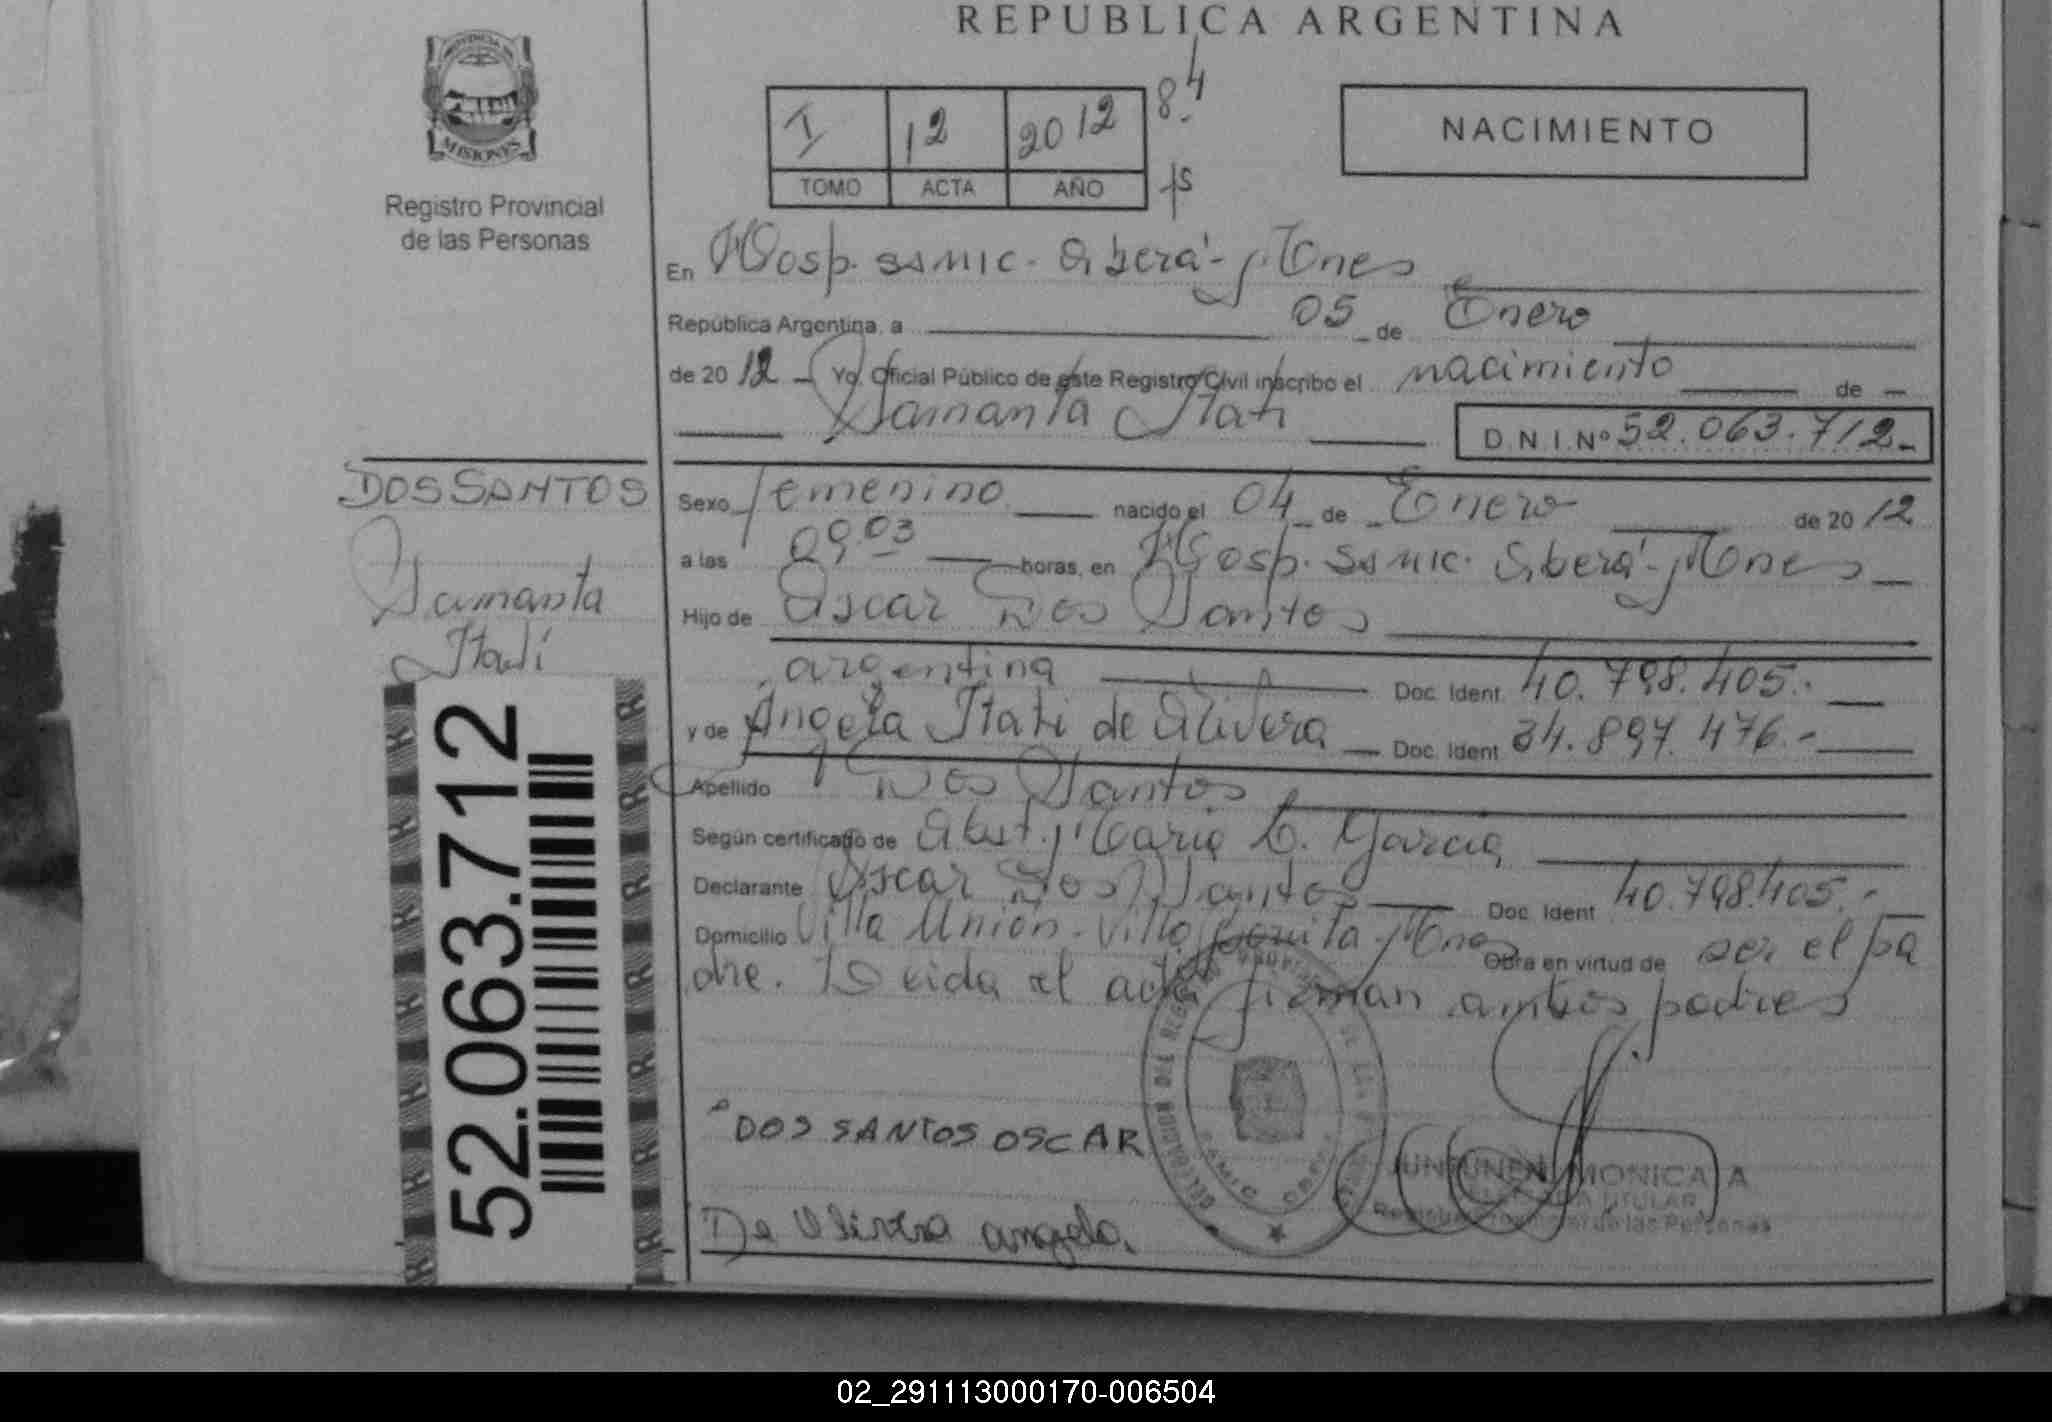 REPUBLICA ARGENTINA
PROVINCIA DE
MISIONES
Registro Provincial
de las Personas
I 12 2012
TOMO ACTA AÑO
NACIMIENTO
En Hosp. SAMIC. Oberá - Mnes
República Argentina, a 05 de Enero
de 20 12 Yo, Oficial Público de este Registro Civil inscribo el nacimiento de
Samanta Itatí
D.N.I.Nº 52.063.712-
DOS SANTOS
Samanta
Itatí
52.063.712
Sexo femenino nacido el 04 de Enero de 20 12
a las 09.03 horas, en Hosp. SAMIC. Oberá - Mnes
Hijo de Oscar Dos Santos
argentina Doc. Ident. 40.798.405.-
y de Angela Itatí de Olivera Doc. Ident. 34.897.476.-
Apellido Dos Santos
Según certificado de Obst. María C. García
Declarante Oscar Dos Santos Doc. Ident 40.798.405.-
Domicilio Villa Unión - Villa Bonita - Mnes Obra en virtud de ser el pa
dre. Leída el acta firman ambos padres
DOS SANTOS OSCAR
De Olivera angela.
JUNTUNEN MONICA A
TITULAR
Registro Provincial de las Personas
DELEGACION DEL REGISTRO PROVINCIAL DE LAS PERSONAS
SAMIC OBERA
02_291113000170-006504